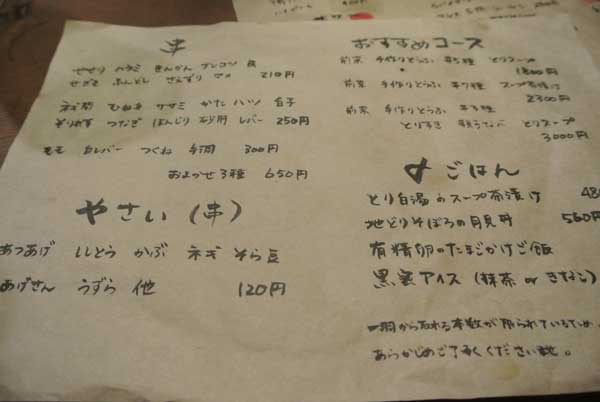 串
せせり ハラミ きんかん ゲンコツ
せぎも ふんどし さえずり マメ 210円
ネギ間 ひねネ ササミ かた ハツ 白子
そりれす つなぎ ぼんじり 砂肝 レバー 250円
もも 白レバー つくね 手羽 300円
おまかせ3種 650円
やさい(串)
あつあげ ししとう かぶ ネギ そら豆
あげさん うずら 他 120円
おすすめコース
前菜 手作りとうふ 串5種 とりスープ
1800円
前菜 手作りとうふ 串7種 スープ茶漬け
2300円
前菜 手作りとうふ 串3種
とりすき とりスープ
3000円
〆ごはん
とり白湯のスープ茶漬け 480
地どりそぼろの月見丼 580円
有精卵のたまごかけご飯
黒蜜アイス(抹茶 or きなこ)
一羽から取れる本数が限られているため、
あらかじめご了承ください。